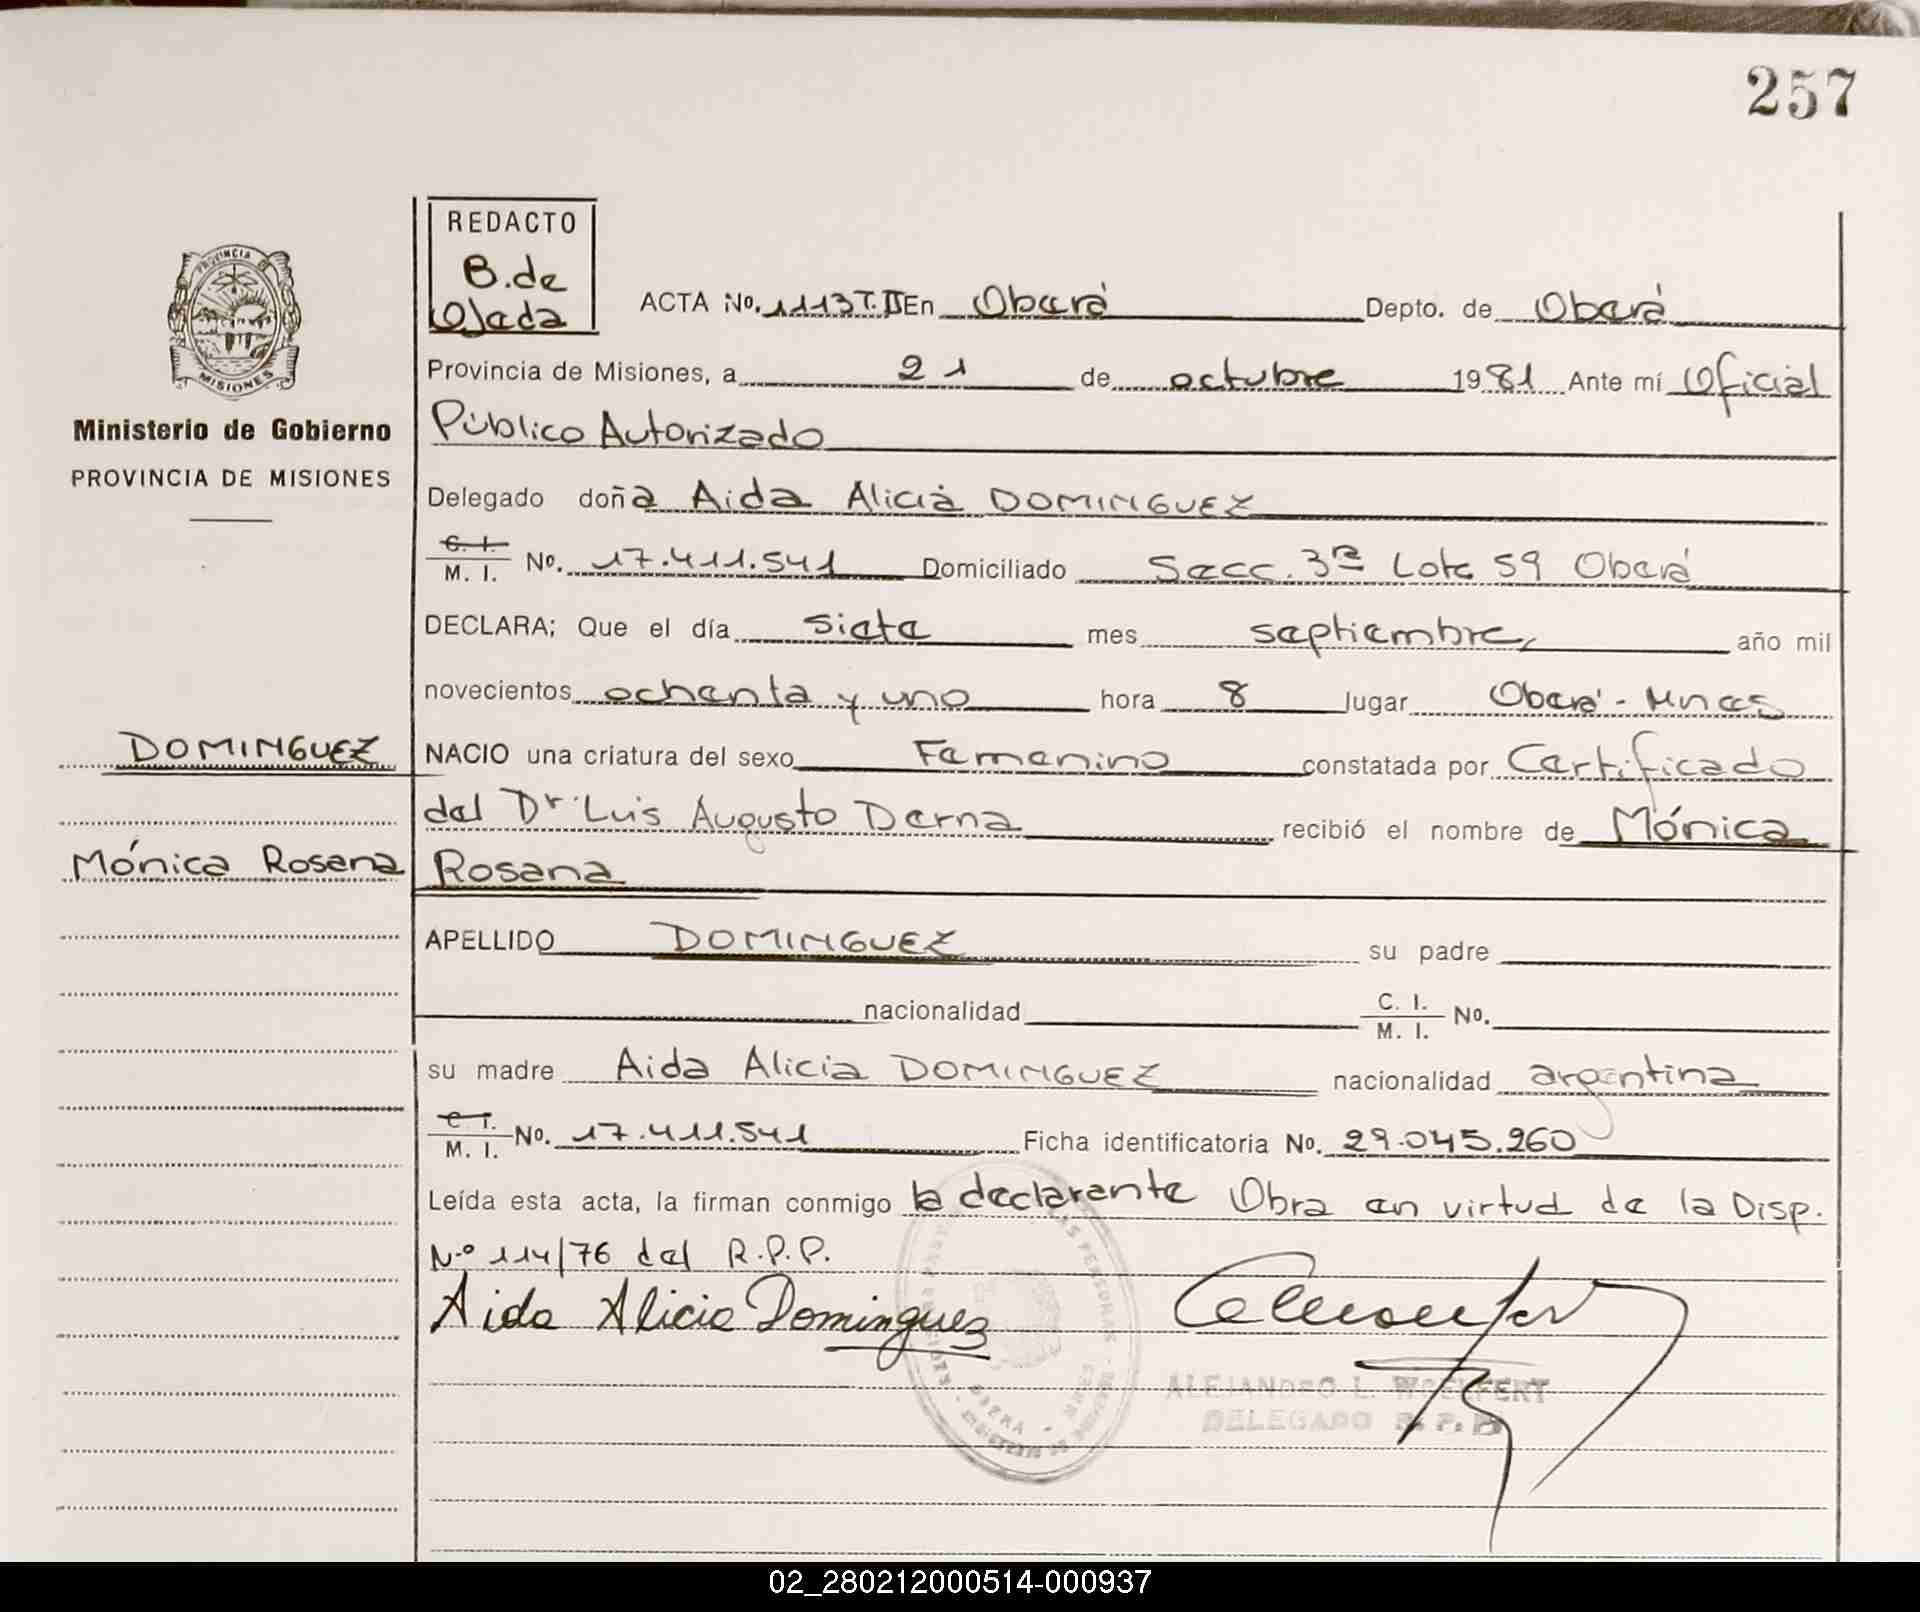 257
REDACTO
B. de
Ojeda
PROVINCIA DE
MISIONES
Ministerio de Gobierno
PROVINCIA DE MISIONES
ACTA No. 1113 T.II En Oberá Depto. de Oberá
Provincia de Misiones, a 21 de octubre 1981 Ante mí Oficial
Público Autorizado
Delegado doña Aida Alicia DOMINGUEZ
C. I.
M. I. No. 17.411.541 Domiciliado Secc. 3ra Lote 59 Oberá
DECLARA; Que el día siete mes septiembre, año mil
novecientos ochenta y uno hora 8 lugar Oberá - Mnes
DOMINGUEZ NACIO una criatura del sexo Femenino constatada por Certificado
del Dr. Luis Augusto Derna recibió el nombre de Mónica
Mónica Rosana Rosana
APELLIDO DOMINGUEZ su padre
nacionalidad C. I.
M. I. No.
su madre Aida Alicia DOMINGUEZ nacionalidad argentina
C. I.
M. I. No. 17.411.541 Ficha identificatoria No. 29.045.260
Leída esta acta, la firman conmigo la declarante Obra en virtud de la Disp.
N.º 114/76 del R.P.P.
Aida Alicia Dominguez
ALEJANDRO L. WOELFERT
DELEGADO R. P. P.
02_280212000514-000937